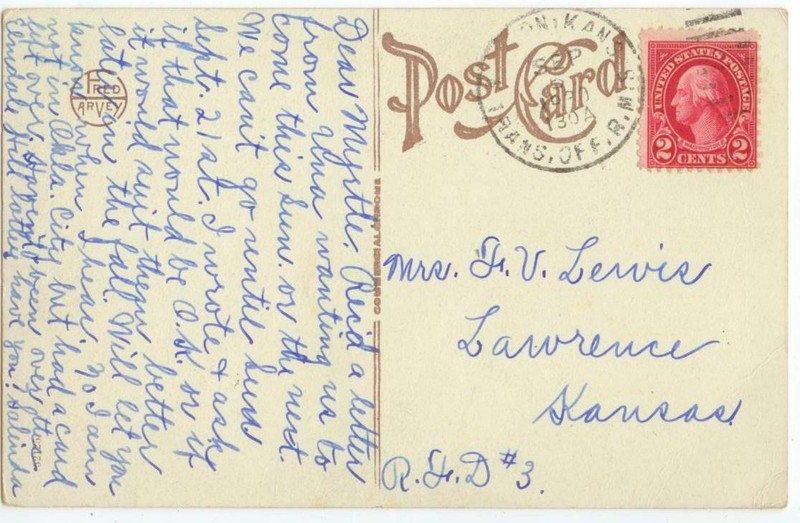 Post Card
ON, KANS
SEP
1930
130A
TRANS. OFF. R.M.S.
UNITED STATES POSTAGE
2 CENTS 2
FRED
HARVEY
COMMERCIALCHROME
Dear Myrtle. Rec'd a letter
from Una wanting us to
come this Sun. or the next.
We can't go until Sun
Sept. 21st. I wrote & ask
if that would be O.K. or if
it would suit them better
later in the fall. Will let you
know when I hear. No I am
not in Okla. City but had a card
Haven't been over
have you? Salinda
Mrs. F. V. Lewis
Lawrence
Kansas
R.F.D #3.